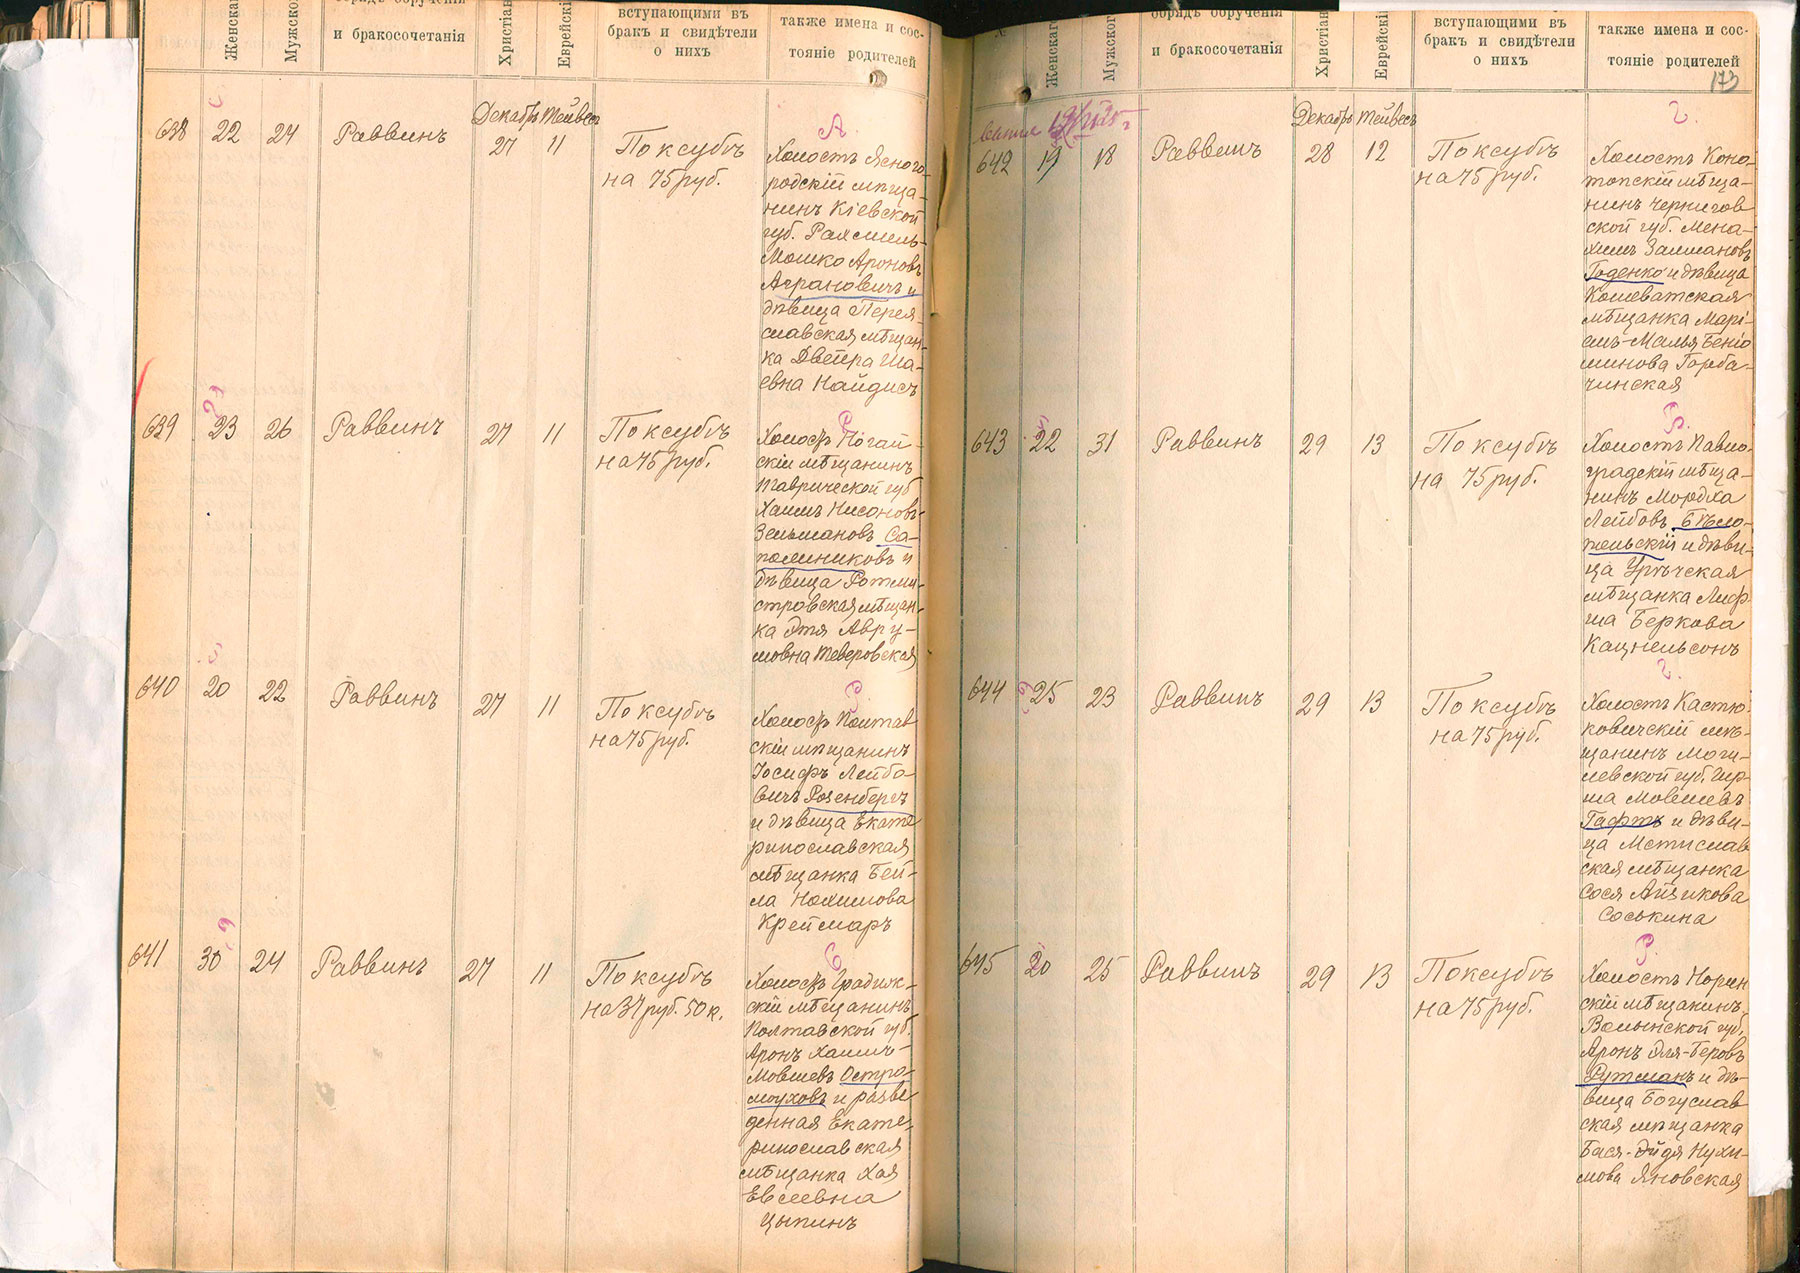 Женска
Мужско
обрядъ обрученія
и бракосочетанія
Христіан
Еврейскі
вступающими въ
бракъ и свидѣтели
о нихъ
также имена и сос-
тояніе родителей
Декабрь Тейвесъ
638 22 24 Раввинъ 27 11 По ксубѣ
на 75 руб.
А.
Холостъ Ясного-
родскій мѣща-
нинъ Кіевской
губ. Рахмиль-
Мошко Ароновъ
Аграновичъ и
дѣвица Перея-
славская мѣщан-
ка Двейра Ша-
евна Найдисъ
639 23 26 Раввинъ 27 11 По ксубѣ
на 75 руб.
Холостъ Ногай-
скій мѣщанинъ
Таврической губ
Хаимъ Нисоновъ-
Зельмановъ Са-
пожниковъ и
дѣвица Ротми-
стровская мѣщан-
ка Этя Авру-
мовна Теверовская
640 20 22 Раввинъ 27 11 По ксубѣ
на 75 руб.
Р.
Холостъ Полтав
скій мѣщанинъ
Іосифъ Лейбо-
вичъ Розенбергъ
и дѣвица Екате
ринославская
мѣщанка Бей-
ла Нохимова
Креймаръ
641 30 24 Раввинъ 27 11 По ксубѣ
на 37 руб. 50 к.
Холостъ Градиж-
скій мѣщанинъ
Полтавской губ.
Аронъ Хаимъ-
Мовшевъ Остро-
моуховъ и разве
денная Екате-
ринославская
мѣщанка Хая
Евсеевна
Цыпинъ
Женскаг
Мужского
обрядъ обрученія
и бракосочетанія
Христіан
Еврейскі
вступающими въ
бракъ и свидѣтели
о нихъ
также имена и сос-
тояніе родителей
173
Декабрь Тейвесъ
642 19 18 Раввинъ 28 12 По ксубѣ
на 75 руб.
Г.
Холостъ Коно-
топскій мѣща-
нинъ Чернигов
ской губ. Мена-
химъ Залмановъ
Годенко и дѣвица
Кошеватская
мѣщанка Марі-
амъ-Малья Беніо
минова Горба-
чинская
643 22 31 Раввинъ 29 13 По ксубѣ
на 75 руб.
Б.
Холостъ Павло-
градскій мѣща-
нинъ Мордха
Лейбовъ Бѣло-
польскій и дѣви-
ца Урѣчская
мѣщанка Лиф
ша Беркова
Кацнельсонъ
644 25 23 Раввинъ 29 13 По ксубѣ
на 75 руб.
Г.
Холостъ Кастю
ковичскій мѣ-
щанинъ Моги-
левской губ. Гир-
ша Мовшевъ
Гафтъ и дѣви-
ца Мстислав
ская мѣщанка
Сося Айзикова
Соськина
645 20 25 Раввинъ 29 13 По ксубѣ
на 75 руб.
Р.
Холостъ Норин
скій мѣщанинъ
Волынской губ.
Аронъ Эля-Беровъ
Рутманъ и дѣ-
вица Богуслав
ская мѣщанка
Бася-Эйдя Нухи-
мова Яновская